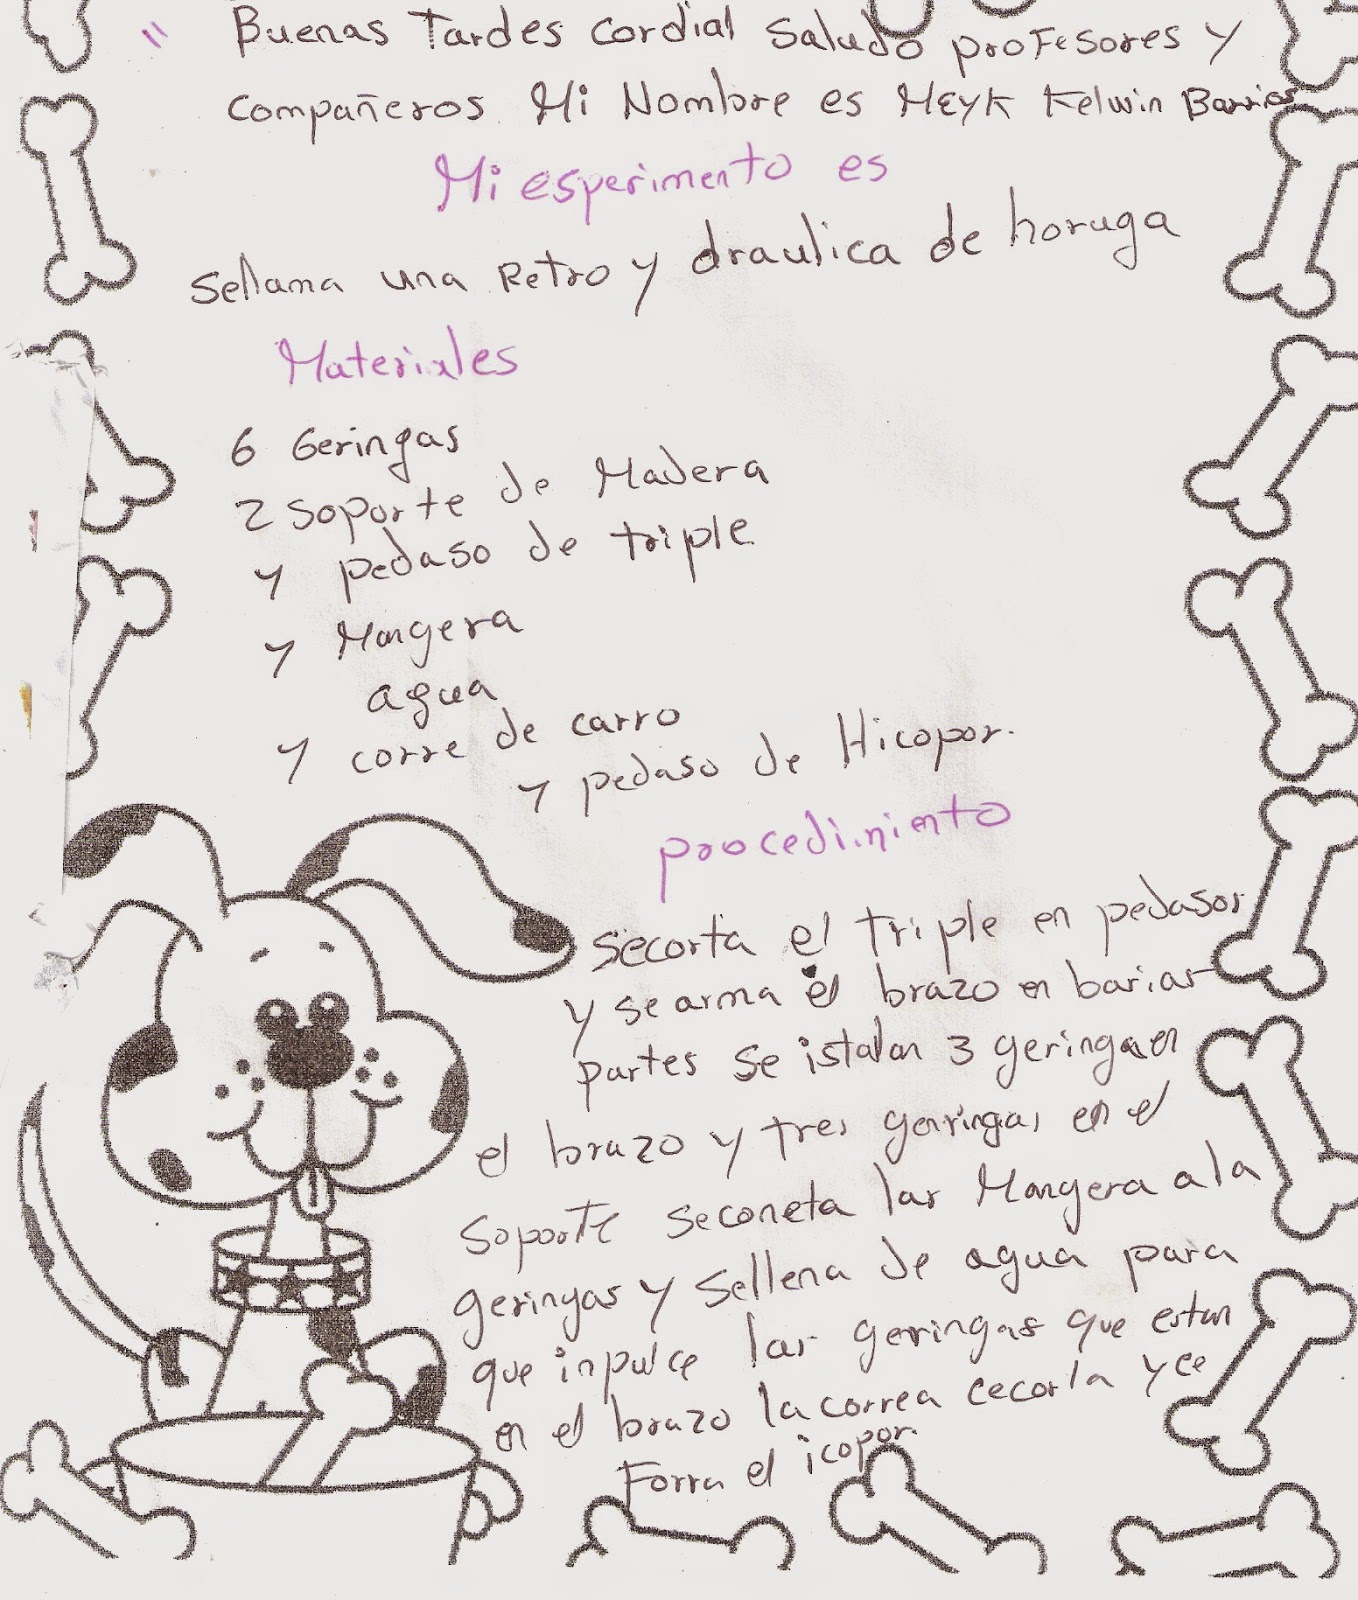 " Buenas Tardes Cordial Saludo profesores y
compañeros Mi Nombre es Meyk Kelwin Barrios
Mi esperimento es
sellama una Retro y draulica de horuga
Materiales
6 Geringas
2 soporte de Madera
y pedaso de triple
y Mangera
agua
y corre de carro
y pedaso de Hicopor.
procedimiento
secorta el triple en pedasor
y se arma el brazo en bariar
partes se istalan 3 geringa en
el brazo y tres gerringas en el
soporte seconeta lar Mangera a la
geringas y sellena de agua para
que inpulce lar geringas que estan
en el brazo la correa cecorta yce
Forra el icopor.